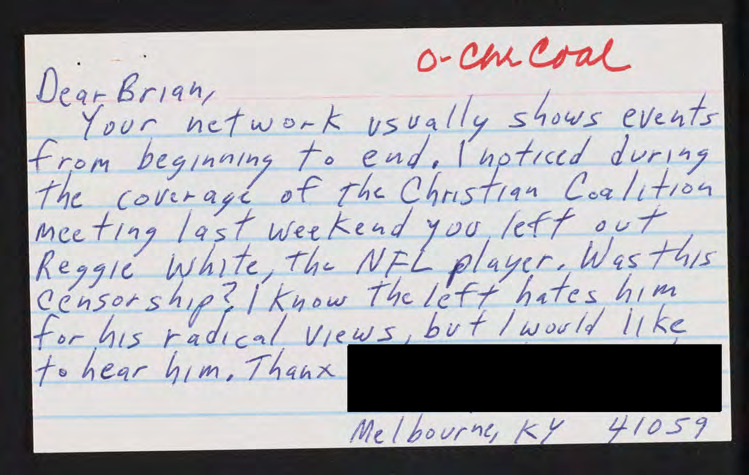 O-Chr Coal
Dear Brian,
Your network usually shows events
from beginning to end. I noticed during
the coverage of the Christian Coalition
meeting last weekend you left out
Reggie White, the NFL player. Was this
censorship? I know the left hates him
for his radical views, but I would like
to hear him. Thanx
Melbourne, KY 41059